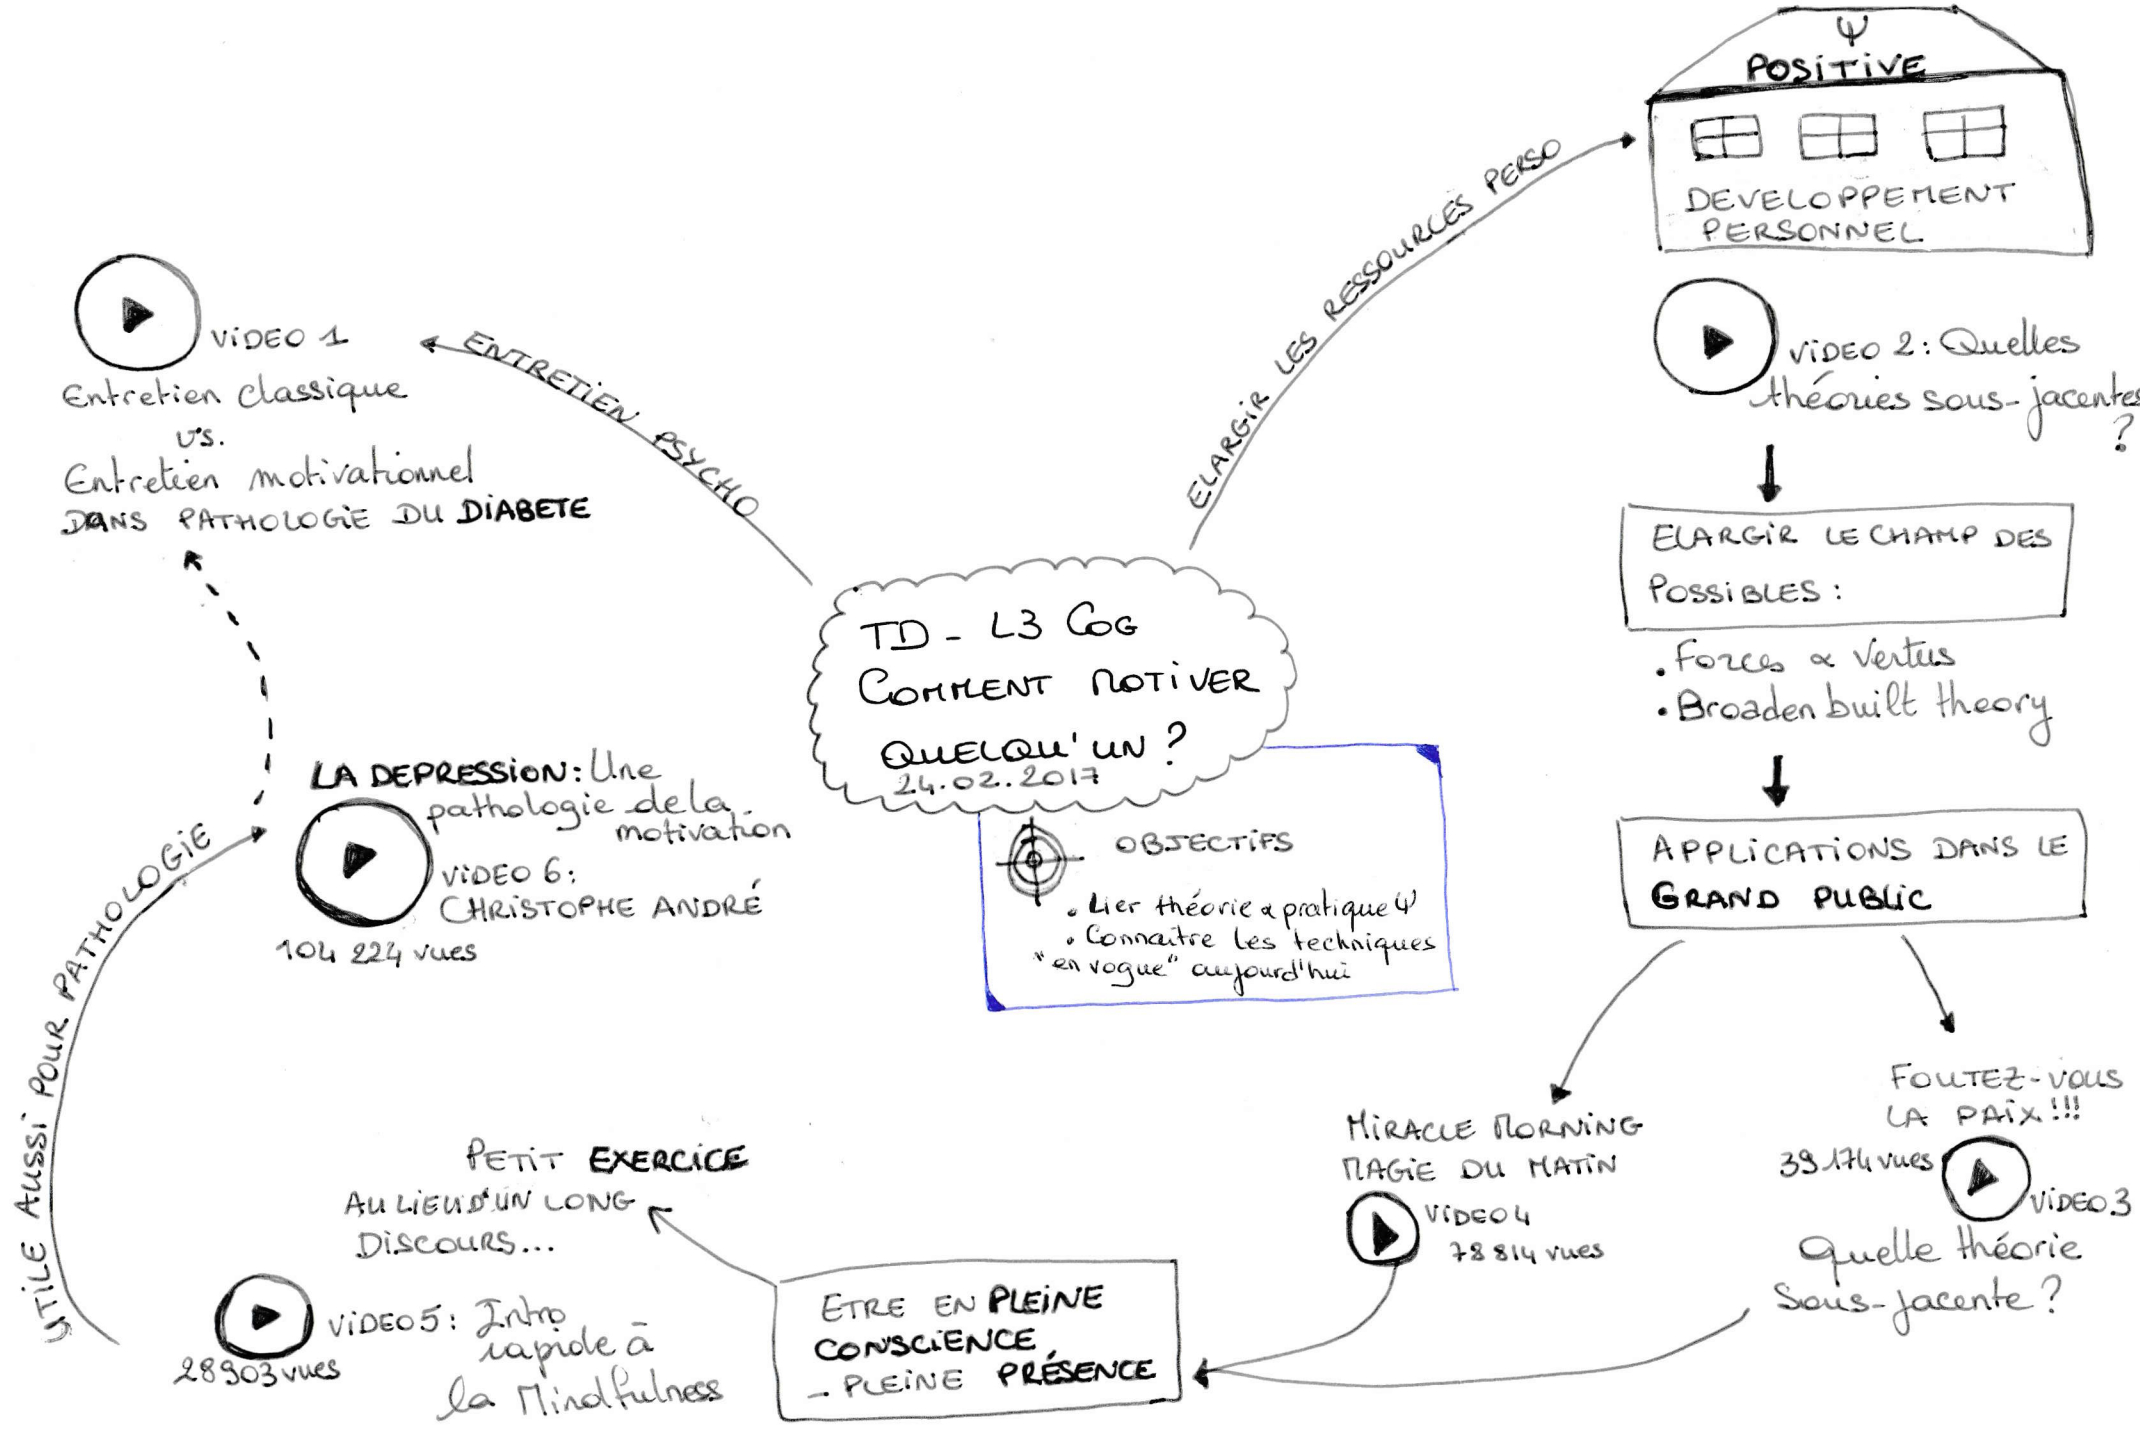 TD - L3 COG
COMMENT MOTIVER
QUELQU'UN ?
24.02.2017
OBJECTIFS
. Lier théorie & pratique Ψ
. Connaitre les techniques
"en vogue" aujourd'hui
ENTRETIEN PSYCHO
VIDEO 1
Entretien classique
vs.
Entretien motivationnel
DANS PATHOLOGIE DU DIABETE
ELARGIR LES RESSOURCES PERSO
Ψ
POSITIVE
DEVELOPPEMENT
PERSONNEL
VIDEO 2 : Quelles
théories sous-jacentes
?
ELARGIR LE CHAMP DES
POSSIBLES :
. Forces & Vertus
. Broaden built theory
APPLICATIONS DANS LE
GRAND PUBLIC
MIRACLE MORNING
MAGIE DU MATIN
VIDEO 4
78 814 vues
FOUTEZ-VOUS
LA PAIX !!!
39 174 vues
VIDEO 3
Quelle théorie
Sous-jacente ?
ETRE EN PLEINE
CONSCIENCE
- PLEINE PRÉSENCE
PETIT EXERCICE
AU LIEU D'UN LONG
DISCOURS...
VIDEO 5 : Intro
rapide à
la Mindfulness
28903 vues
UTILE AUSSI POUR PATHOLOGIE
LA DEPRESSION : Une
pathologie de la
motivation
VIDEO 6 :
CHRISTOPHE ANDRÉ
104 224 vues